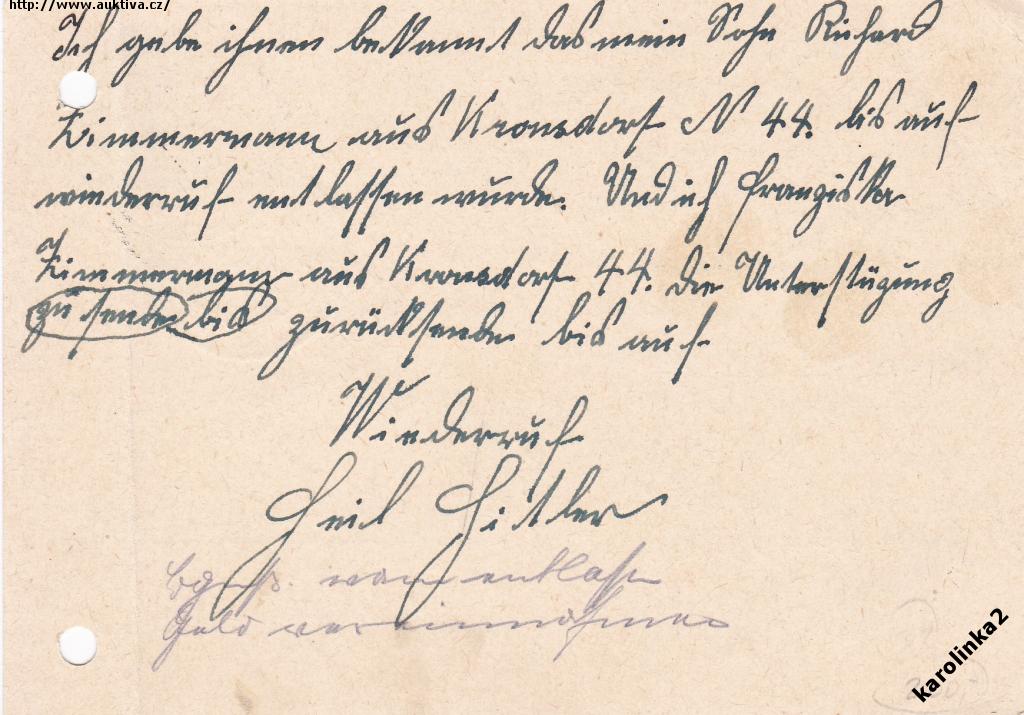 http://www.auktiva.cz/
Ich gebe ihnen bekannt das mein Sohn Richard
Zimmermann aus Kronsdorf N 44. bis auf
wiederruf entlassen wurde. Und ich franziska
Zimmermann aus Kronsdorf 44. die Unterstüzung
zu sende bis zurücksende bis auf
Wiederruf
Heil Hitler
entlassen
Geld vereinnahmen
karolinka2